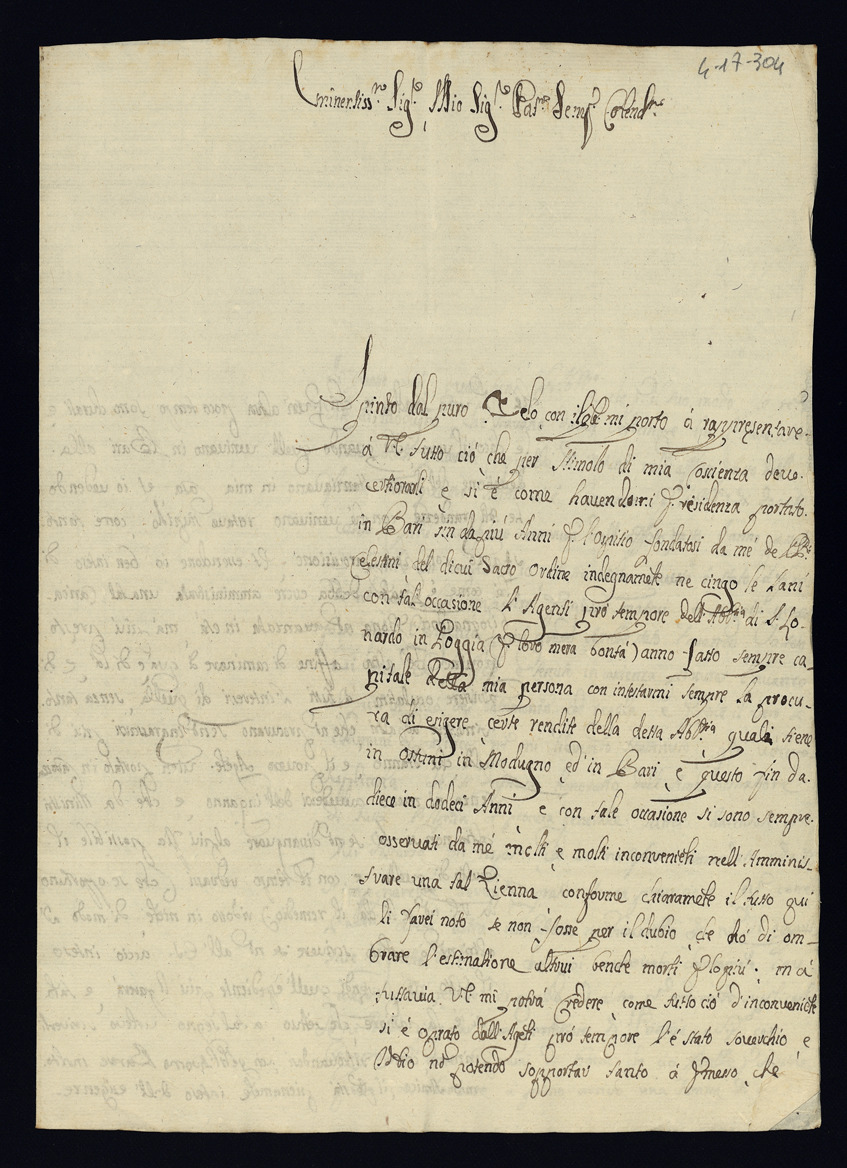 4-17-304
Eminentiss.mo Sig.re Mio Sig.re Pad.ne Semp.e Colend.mo
Spinto dal puro Zelo con il q.le mi porto á rappresentare
á VE tutto ció che per stimolo di mia Coscienza devo
certiorarli e si é come havendomi p residenza portato
in Bari sin da piú Anni p l'Ospitio fondatosi da mé de PP.
Celestini del di cui Sacro Ordine indegnamẽte ne cingo le Lani
con tal'occasione l'Agenti pro tempore dell'Abb.ia di S. Lo-
nardo in Foggia (p loro mera bontá) anno fatto sempre ca-
pitale della mia persona con intestarmi sempre la procu-
ra di esigere certe rendite della detta Abb.tia quali siene
in Ostuni in Modugno ed' in Bari e questo fin da
diece in dodeci Anni e con tale occasione si sono sempre
osservati da mé molti e molti inconvenieti nell'Amminis-
trare una tal' Rienna conforme chiaramẽte il tutto qui
li farei noto se non fosse per il dubio che hó di om-
brare l'estimatione altrui benche morti p lo piú: má
tuttavia VE mi potrá credere come tutto ció d'inconveniẽte
si é oprato dall'Agẽti pró tempore l'é stato soverchio e
Iddio nõ potendo sopportar tanto á p̃messo che